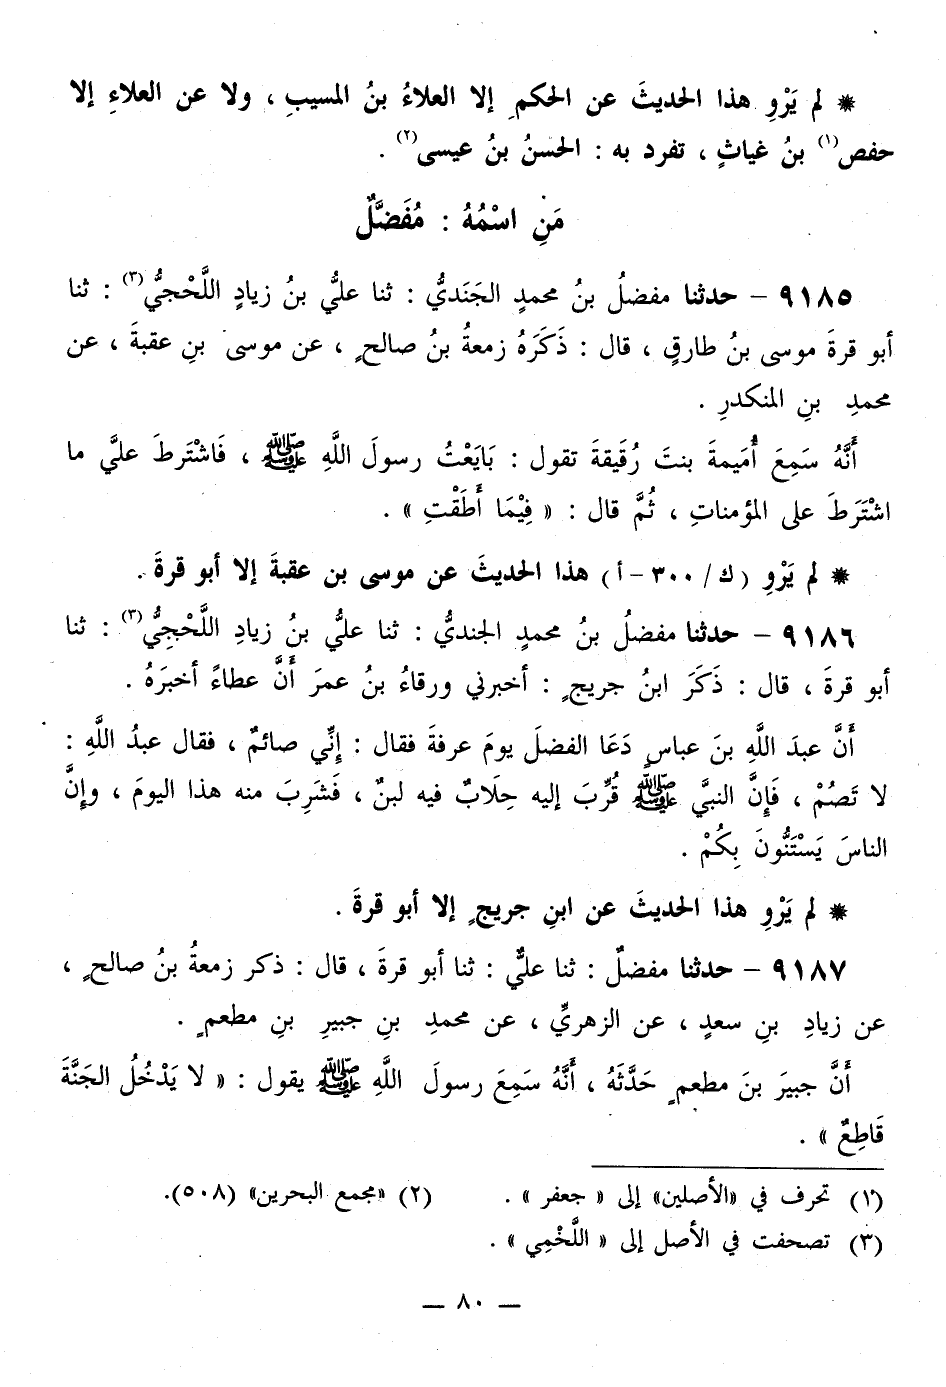 * لم يَرْوِ هذا الحديثَ عن الحكمِ إلا العلاءُ بنُ المسيبِ ، ولا عن العلاءِ إلا
حفص(١) بنُ غياثٍ ، تفرد به : الحسنُ بنُ عيسى(٢) .
مَنِ اسْمُهُ : مُفَضَّلٌ
٩١٨٥ – حدثنا مفضلُ بنُ محمدٍ الجَنَديُّ : ثنا عليُّ بنُ زيادٍ اللَّحْجيُّ(٣) : ثنا
أبو قرةَ موسى بنُ طارقٍ ، قال : ذَكَرَهُ زمعةُ بنُ صالحٍ ، عن موسى بنِ عقبةَ ، عن
محمدِ بنِ المنكدرِ .
أَنَّهُ سَمِعَ أُمَيمةَ بنتَ رُقَيقةَ تقول : بَايَعْتُ رسولَ اللَّهِ ﷺ ، فَاشْتَرطَ عليَّ ما
اشْتَرَطَ على المؤمناتِ ، ثُمَّ قال : « فِيْمَا أَطَقْتِ » .
* لم يَرْوِ (ك/٣٠٠-أ) هذا الحديثَ عن موسى بن عقبةَ إلا أبو قرةَ .
٩١٨٦ – حدثنا مفضلُ بنُ محمدٍ الجنديُّ : ثنا عليُّ بنُ زيادِ اللَّحْجِيُّ(٣) : ثنا
أبو قرةَ ، قال : ذَكَرَ ابنُ جريجٍ : أخبرني ورقاءُ بنُ عمرَ أَنَّ عطاءً أخبرَهُ .
أَنَّ عبدَ اللَّهِ بنَ عباسٍ دَعَا الفضلَ يومَ عرفةَ فقال : إِنِّي صائمٌ ، فقال عبدُ اللَّهِ :
لا تَصُمْ ، فَإِنَّ النبيَّ ﷺ قُرِّبَ إليه حِلَابٌ فيه لبنٌ ، فَشَرِبَ منه هذا اليومَ ، وإِنَّ
الناسَ يَسْتَنُّونَ بِكُمْ .
* لم يَرْوِ هذا الحديثَ عن ابنِ جريجٍ إلا أبو قرةَ .
٩١٨٧ – حدثنا مفضلٌ : ثنا عليٌّ : ثنا أبو قرةَ ، قال : ذكر زمعةُ بنُ صالحٍ ،
عن زيادِ بنِ سعدٍ ، عن الزهريِّ ، عن محمدِ بنِ جبيرِ بنِ مطعمٍ .
أَنَّ جبيرَ بنَ مطعمٍ حَدَّثَهُ ، أَنَّهُ سَمِعَ رسولَ اللَّهِ ﷺ يقول : « لا يَدْخُلُ الجَنَّةَ
قَاطِعٌ » .
(١) تحرف في «الأصلين» إلى « جعفر » . (٢) «مجمع البحرين» (٥٠٨).
(٣) تصحفت في الأصل إلى « اللَّخْمِي » .
— ٨٠ —